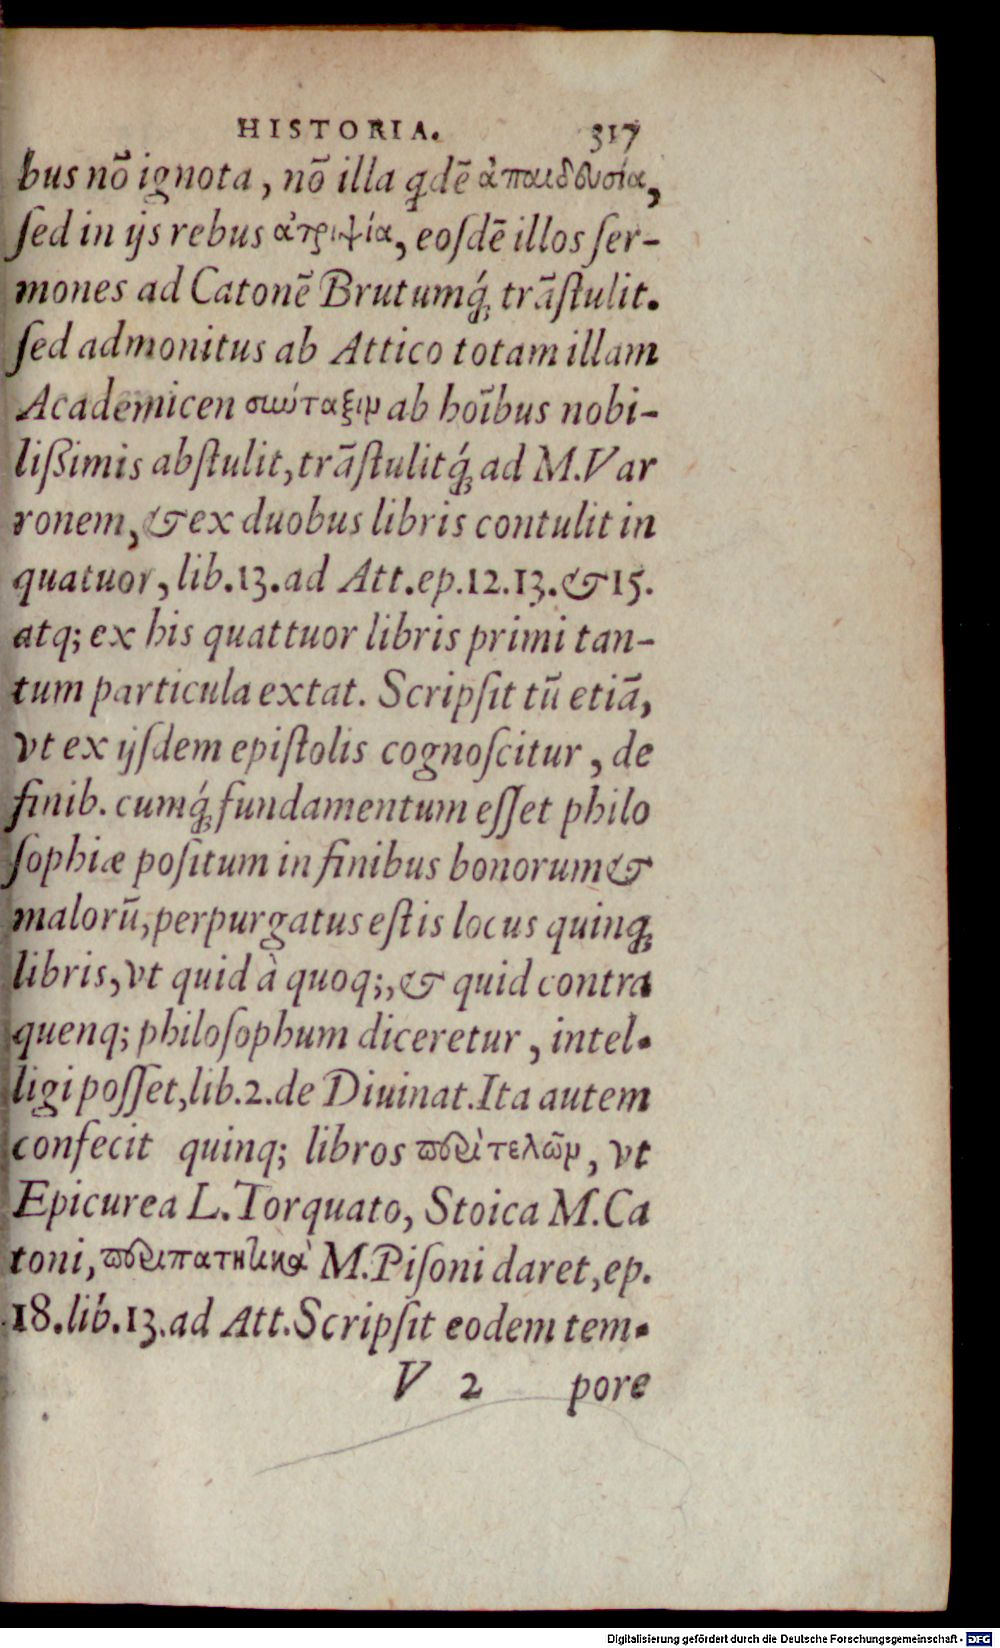 HISTORIA. 317
bus nō ignota, nō illa qdē ἀπαιδευσία,
ſed in ijs rebus ἀτριψία, eoſdē illos ſer-
mones ad Catonē Brutumq́; trāſtulit.
ſed admonitus ab Attico totam illam
Academicen σύνταξιν ab hoībus nobi-
lißimis abſtulit, trāſtulitq́; ad M.Var
ronem, & ex duobus libris contulit in
quatuor, lib.13.ad Att.ep.12.13.& 15.
atq; ex his quattuor libris primi tan-
tum particula extat. Scripſit tū etiā,
vt ex ijſdem epiſtolis cognoſcitur, de
finib. cumq́; fundamentum eſſet philo
ſophiæ poſitum in finibus bonorum &
malorū, perpurgatus eſt is locus quinq;
libris, vt quid à quoq;, & quid contra
quenq; philoſophum diceretur, intel-
ligi poſſet, lib.2.de Diuinat.Ita autem
confecit quinq; libros περὶ τελῶν, vt
Epicurea L.Torquato, Stoica M.Ca
toni, περιπατητικὰ M.Piſoni daret, ep.
18.lib.13.ad Att.Scripſit eodem tem-
V 2 pore
Digitalisierung gefördert durch die Deutsche Forschungsgemeinschaft - DFG